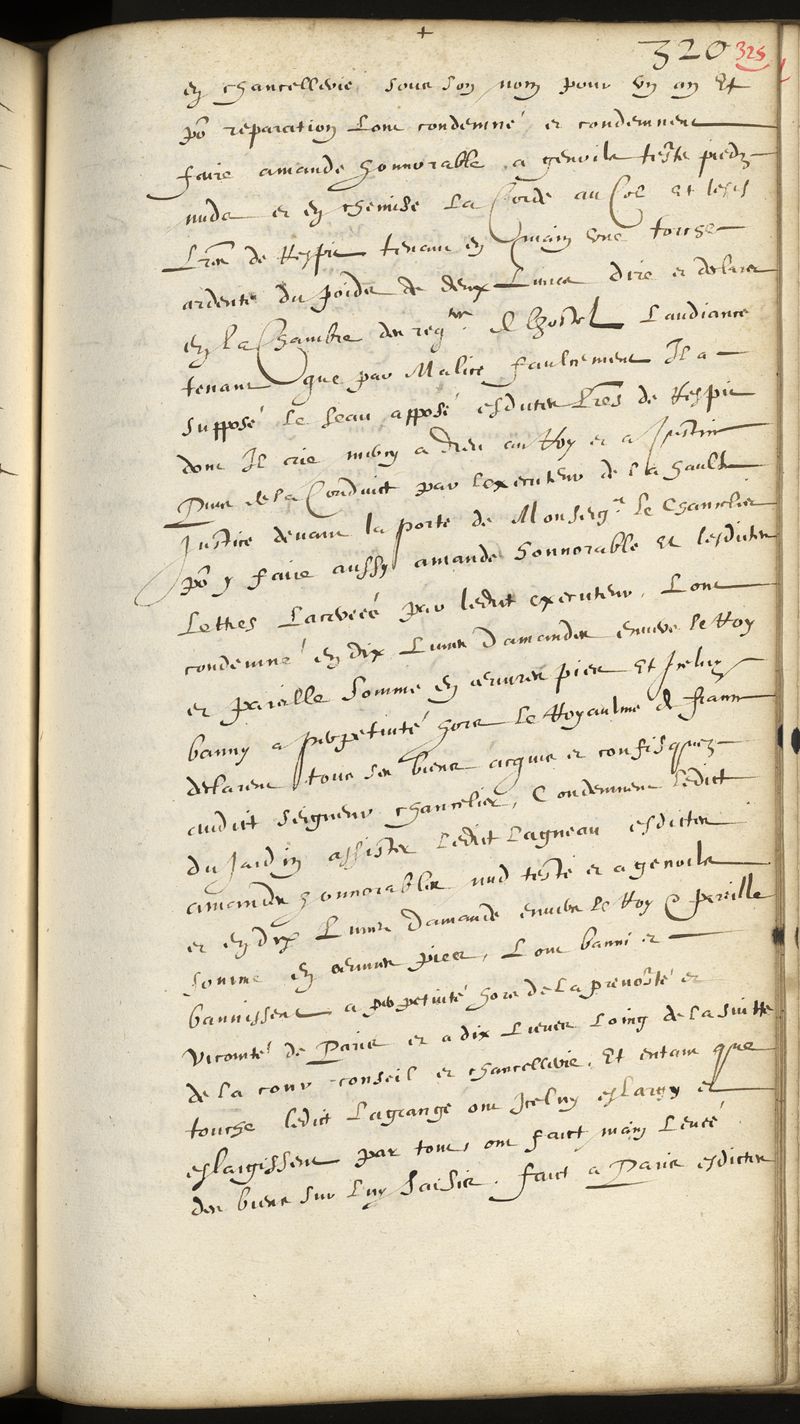 +
320 325
en chancellerie soue son nom pour un an Et
po reparation Lont condemné et condemnent
faire amande honnorable a genoilz teste piedz
nudz et en chemise La Corde au Col Et lesd
Lres de Respit tenant en main une torche
ardente du poidz de deux Livres dire et declarer
en la Chambre des reqtes de Lhostel Laudiance
tenant que par Malice faulcement Il a
supposé le seau apposé esdites Lres de Respit
dont Il crie mercy a dieu au Roy et a Justice
Puis de la Conduict par lexecuteur de la haulte
Justice devant la porte de Monseigr le Chancelier
po y faire aussy amande honnorable et lesdictes
Lettres Lacereéé par ledict executeur, Lont
condemné en dix Livres Damandes envers le Roy
et pareille Somme en œuvres pies Et Iceluy
banny a perpetuité hors le Royaulme de france
declarent tous ses biens acquis et confisquez
audict seigneur chancelier, Condemnent ledict
du Jardin assister ledict Lagneau esdictes
amandes honnorables nud teste et a genoilz
et en dix Livres Damande envers le Roy & pareille
somme en œuvres pies, Lont banni et
bannissent a perpetuité hors de la prevosté et
vicomté de Paris et a dix Lieues Loing de la suitte
de la cour conseil et chancellerie, Et entant que
touche ledict Lagrange ont Iceluy eslargy et
eslargissent par tout, ont faict main Leveé
des biens sur Luy saisis. faict a Paris esdictes